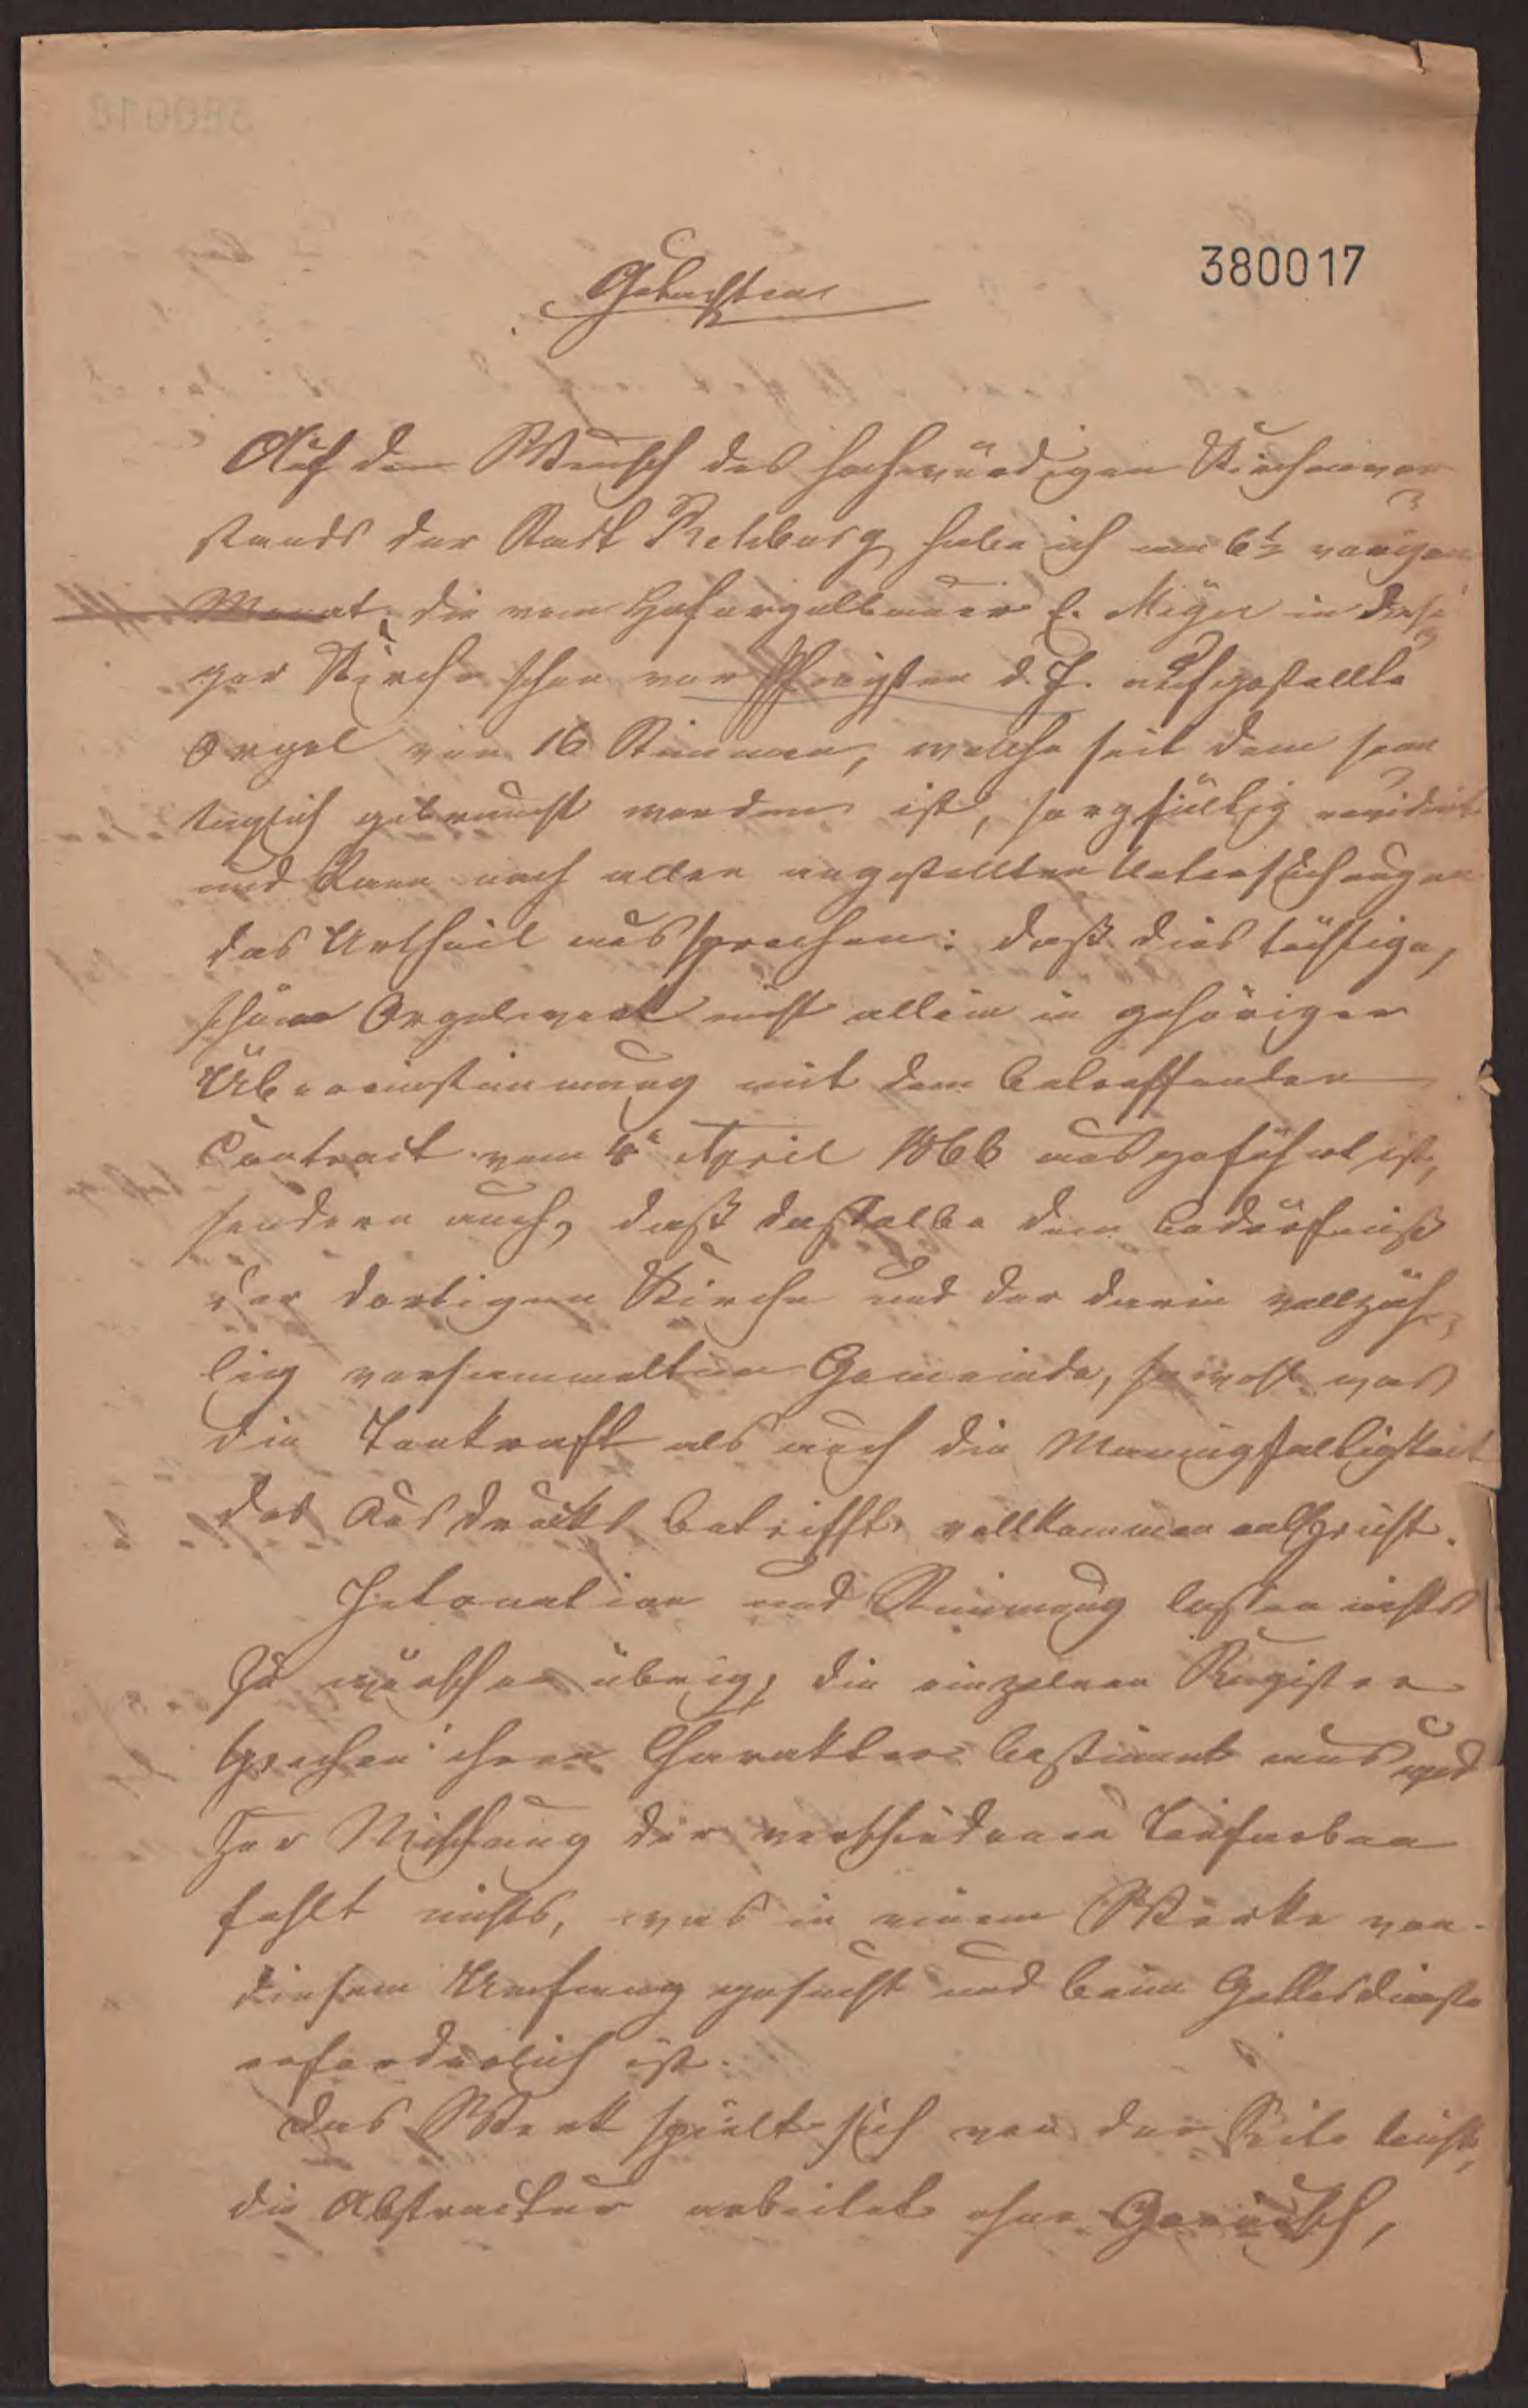 380017
Gutachten
Auf den Wunsch des hochwürdigen Kirchenvor
stands der Stadt Rehburg habe ich am 6t vorigen
Monat, die vom Hoforgelbauer E. Meyer in dasi
ger Kirche schon vor Pfingsten d. J. aufgestellte
Orgel von 16 Stimmen, welche seit dem sonn
täglich gebraucht worden ist, sorgfältig revidirt
und kann nach allen angestellten Untersuchungen
das Urtheil aussprechen: daß dies tüchtige,
schöne Orgelwerk nicht allein in gehöriger
Übereinstimmung mit dem betreffenden
Contract vom 4t April 1866 ausgeführt ist,
sondern auch, daß dasselbe dem Bedürfniß
der dortigen Kirche und der darin vollzäh-
lig versammelten Gemeinde, sowohl was
die Tonkraft als auch die Mannigfaltigkeit
des Ausdrucks betrifft, vollkommen entspricht.
Intonation und Stimmung lassen nichts
zu wünschen übrig, die einzelnen Register
sprechen ihren Charakter bestimmt aus und
zur Mischung der verschiedenen Tonfarben
fehlt nichts, was in einem Werke von
diesem Umfang gesucht und beim Gottesdienste
erforderlich ist.
Das Werk spielt sich von der Seite leicht,
die Abstractur arbeitet ohne Geräusch,